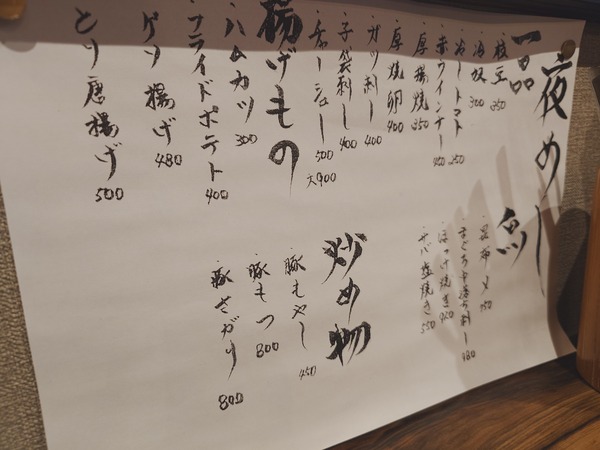 夜めし
一品
・枝豆 350
・冷奴 300
・冷しトマト 350
・赤ウインナー 450
・厚揚焼 350
・厚焼卵 400
・ガツ刺し 400
・子袋刺し 400
・チャーシュー 500
大900
揚げもの
・ハムカツ 300
・フライドポテト 400
ゲソ揚げ 480
とり唐揚げ 500
魚
・昆布〆 750
・ほっけ焼き
・サバ塩焼き 550
炒め物
・豚もやし 450
・豚もつ 800
・豚さがり 800